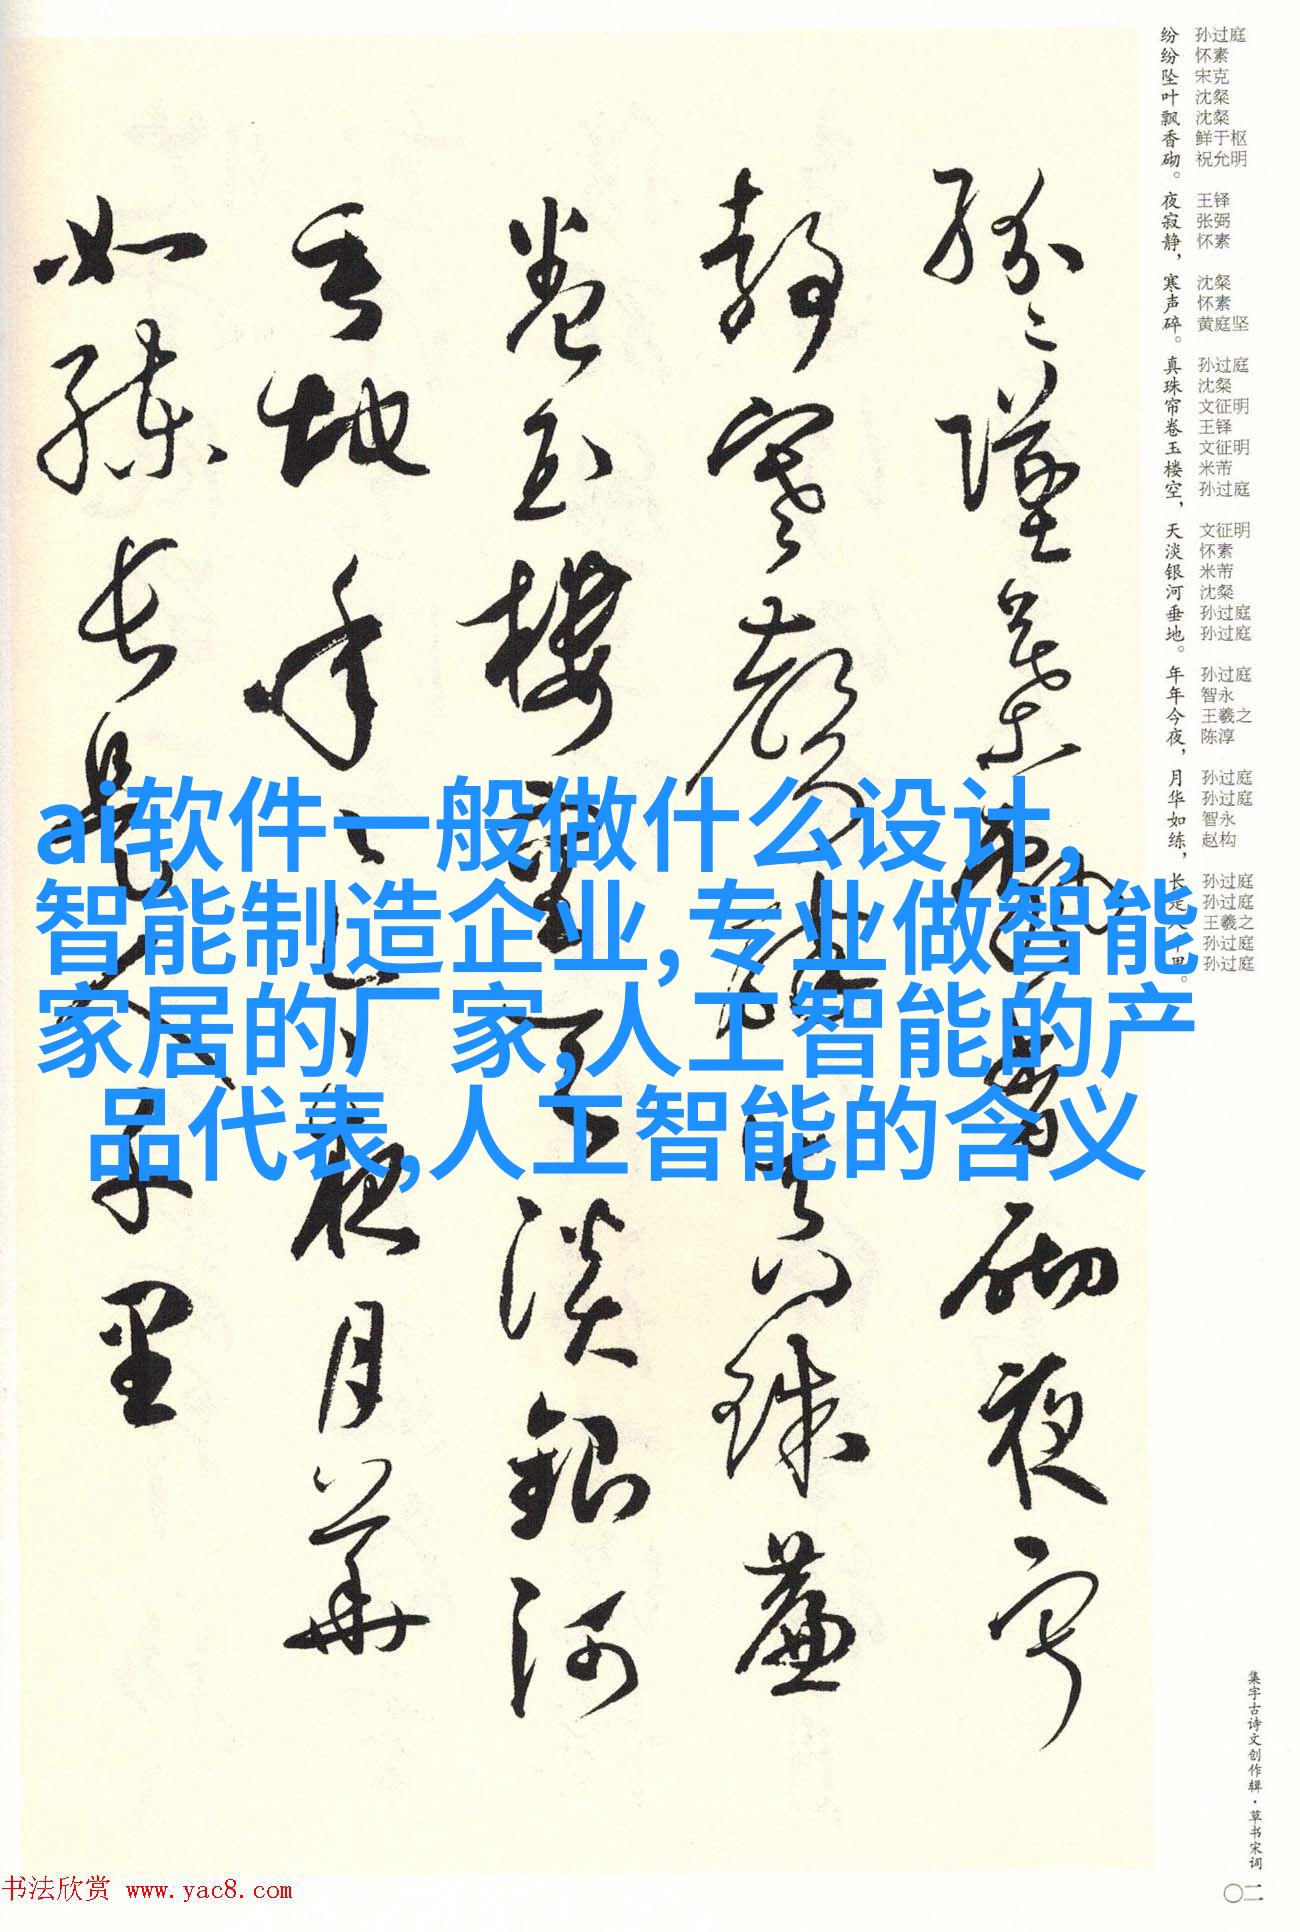 纷纷坠叶飘香砌。夜寂静,寒声碎。真珠帘卷玉楼空,天淡银河垂地。年年今夜,月华如练,长是人千里。
孙过庭
怀素
宋克
沈粲
沈粲
鲜于枢
祝允明
王铎
张弼
怀素
沈粲
怀素
黄庭坚
孙过庭
沈粲
文征明
王铎
文征明
米芾
孙过庭
文征明
怀素
米芾
沈粲
孙过庭
孙过庭
孙过庭
智永
王羲之
陈淳
孙过庭
孙过庭
智永
赵构
孙过庭
孙过庭
王羲之
孙过庭
孙过庭
纷纷坠叶飘香砌夜寂
静寒声碎真珠帘
卷玉楼空天淡银河
垂地年年今夜月华
如练长是人千里
ai软件一般做什么设计,
智能制造企业,专业做智能
家居的厂家,人工智能的产
品代表,人工智能的含义
集字古诗文创作辑·草书宋词
〇二
书法欣赏 www.yac8.com